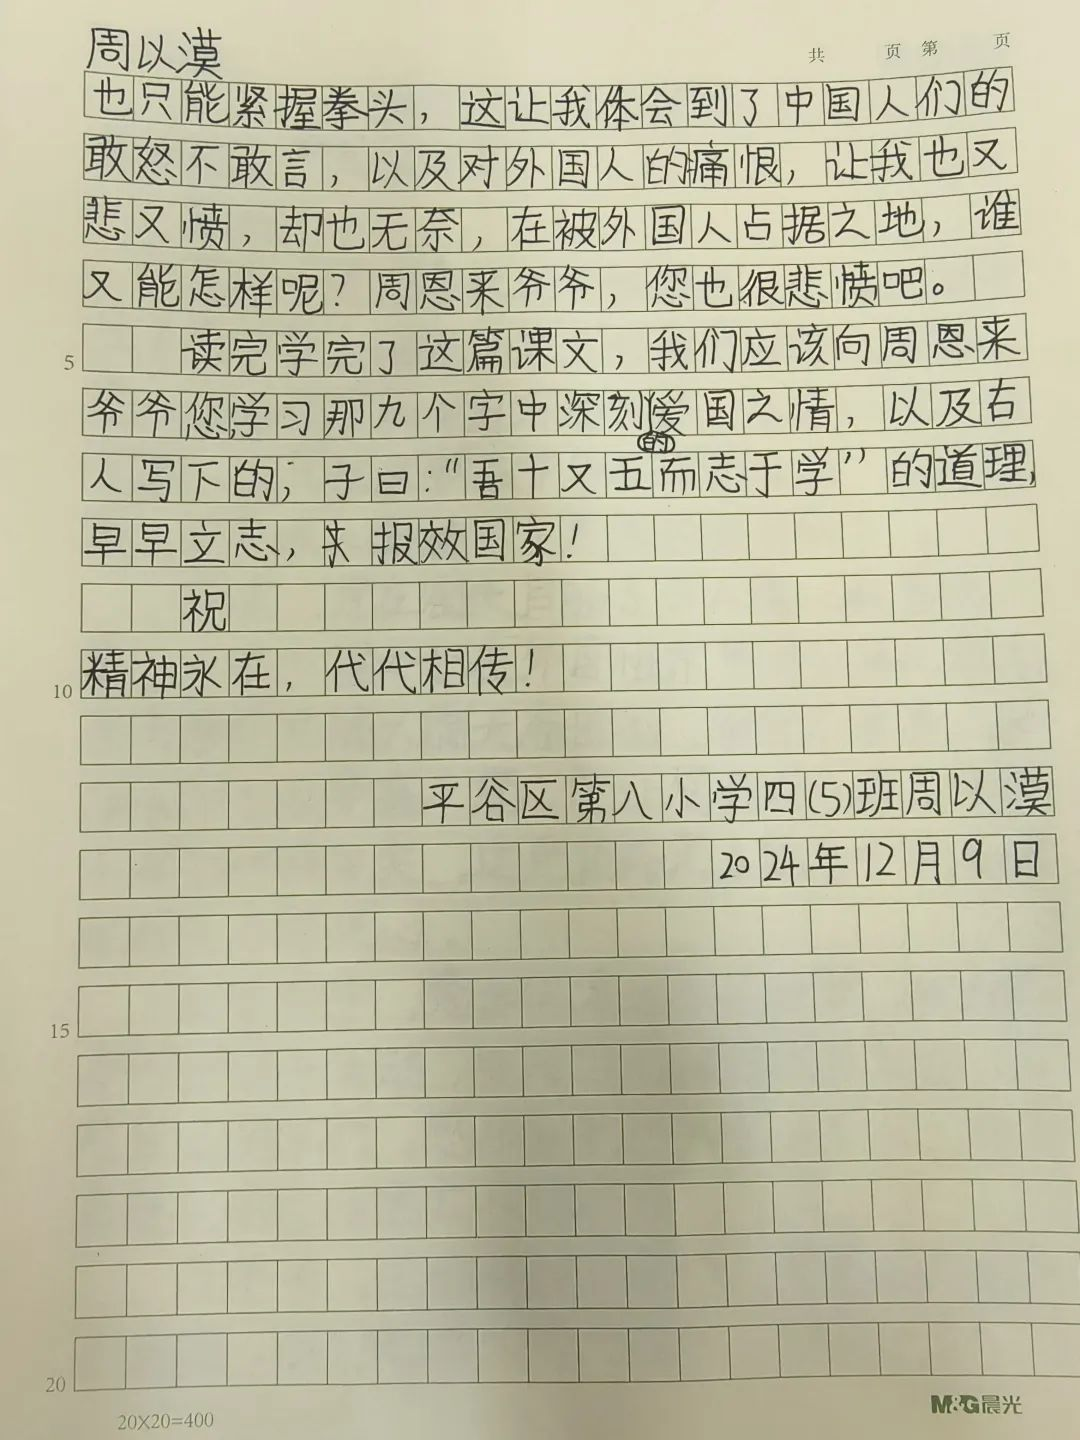 周以漠
共 页 第 页
也只能紧握拳头，这让我体会到了中国人们的
敢怒不敢言，以及对外国人的痛恨，让我也又
悲又愤，却也无奈，在被外国人占据之地，谁
又能怎样呢？周恩来爷爷，您也很悲愤吧。
5 读完学完了这篇课文，我们应该向周恩来
爷爷您学习那九个字中深刻的爱国之情，以及右
人写下的；子曰："吾十又五而志于学"的道理，
早早立志，报效国家！
祝
10 精神永在，代代相传！
平谷区第八小学四(5)班周以漠
2024年12月9日
15
20
20X20=400
M&G晨光